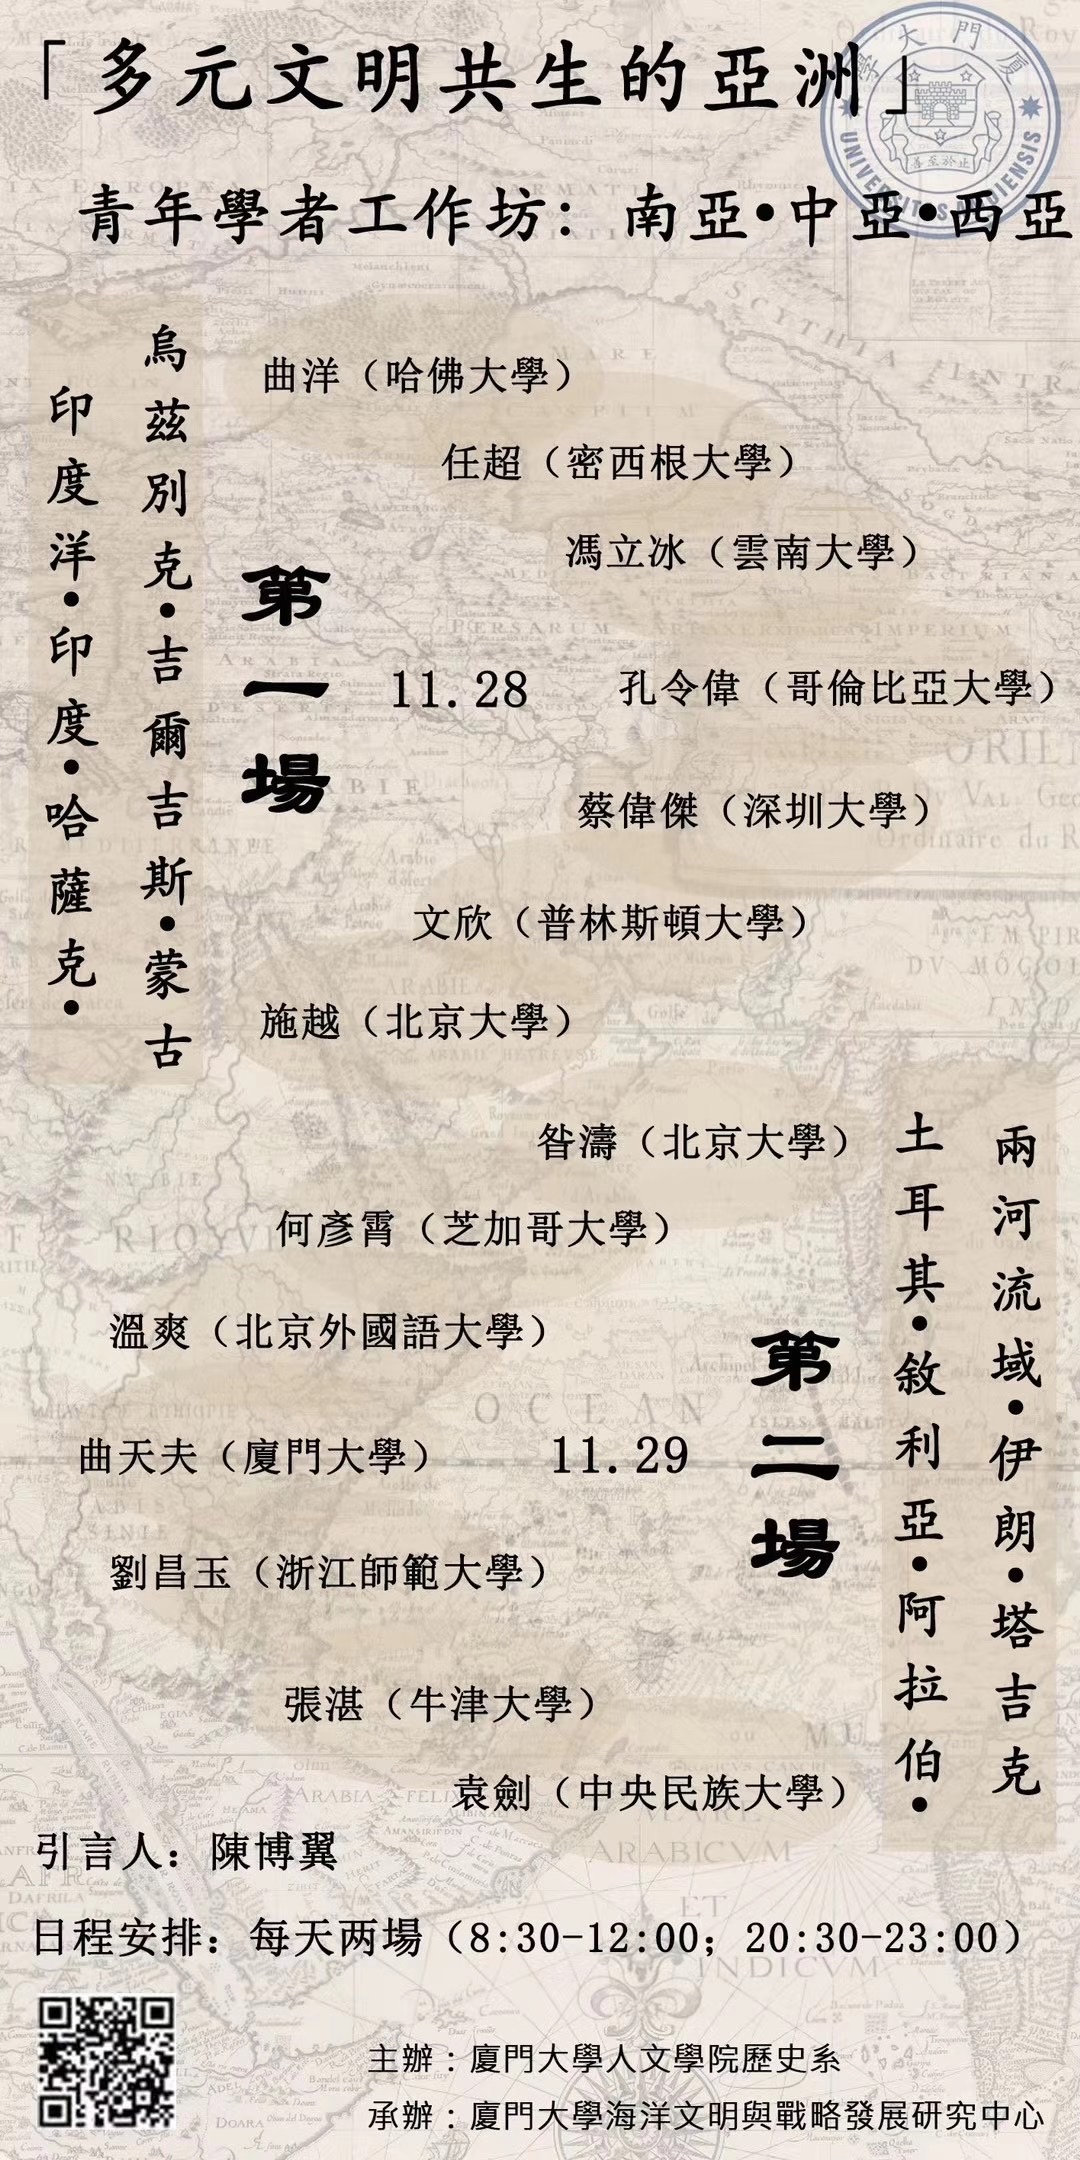 「多元文明共生的亞洲」
廈門大學
UNIVERSITAS AMOIENSIS
止於至善
青年學者工作坊：南亞•中亞•西亞
烏茲別克•吉爾吉斯•蒙古
印度洋•印度•哈薩克•
第一場
11.28
曲洋（哈佛大學）
任超（密西根大學）
馮立冰（雲南大學）
孔令偉（哥倫比亞大學）
蔡偉傑（深圳大學）
文欣（普林斯頓大學）
施越（北京大學）
兩河流域•伊朗•塔吉克
土耳其•敘利亞•阿拉伯•
第二場
11.29
昝濤（北京大學）
何彥霄（芝加哥大學）
溫爽（北京外國語大學）
曲天夫（廈門大學）
劉昌玉（浙江師範大學）
張湛（牛津大學）
袁劍（中央民族大學）
引言人：陳博翼
日程安排：每天两場（8:30-12:00；20:30-23:00）
主辦：廈門大學人文學院歷史系
承辦：廈門大學海洋文明與戰略發展研究中心